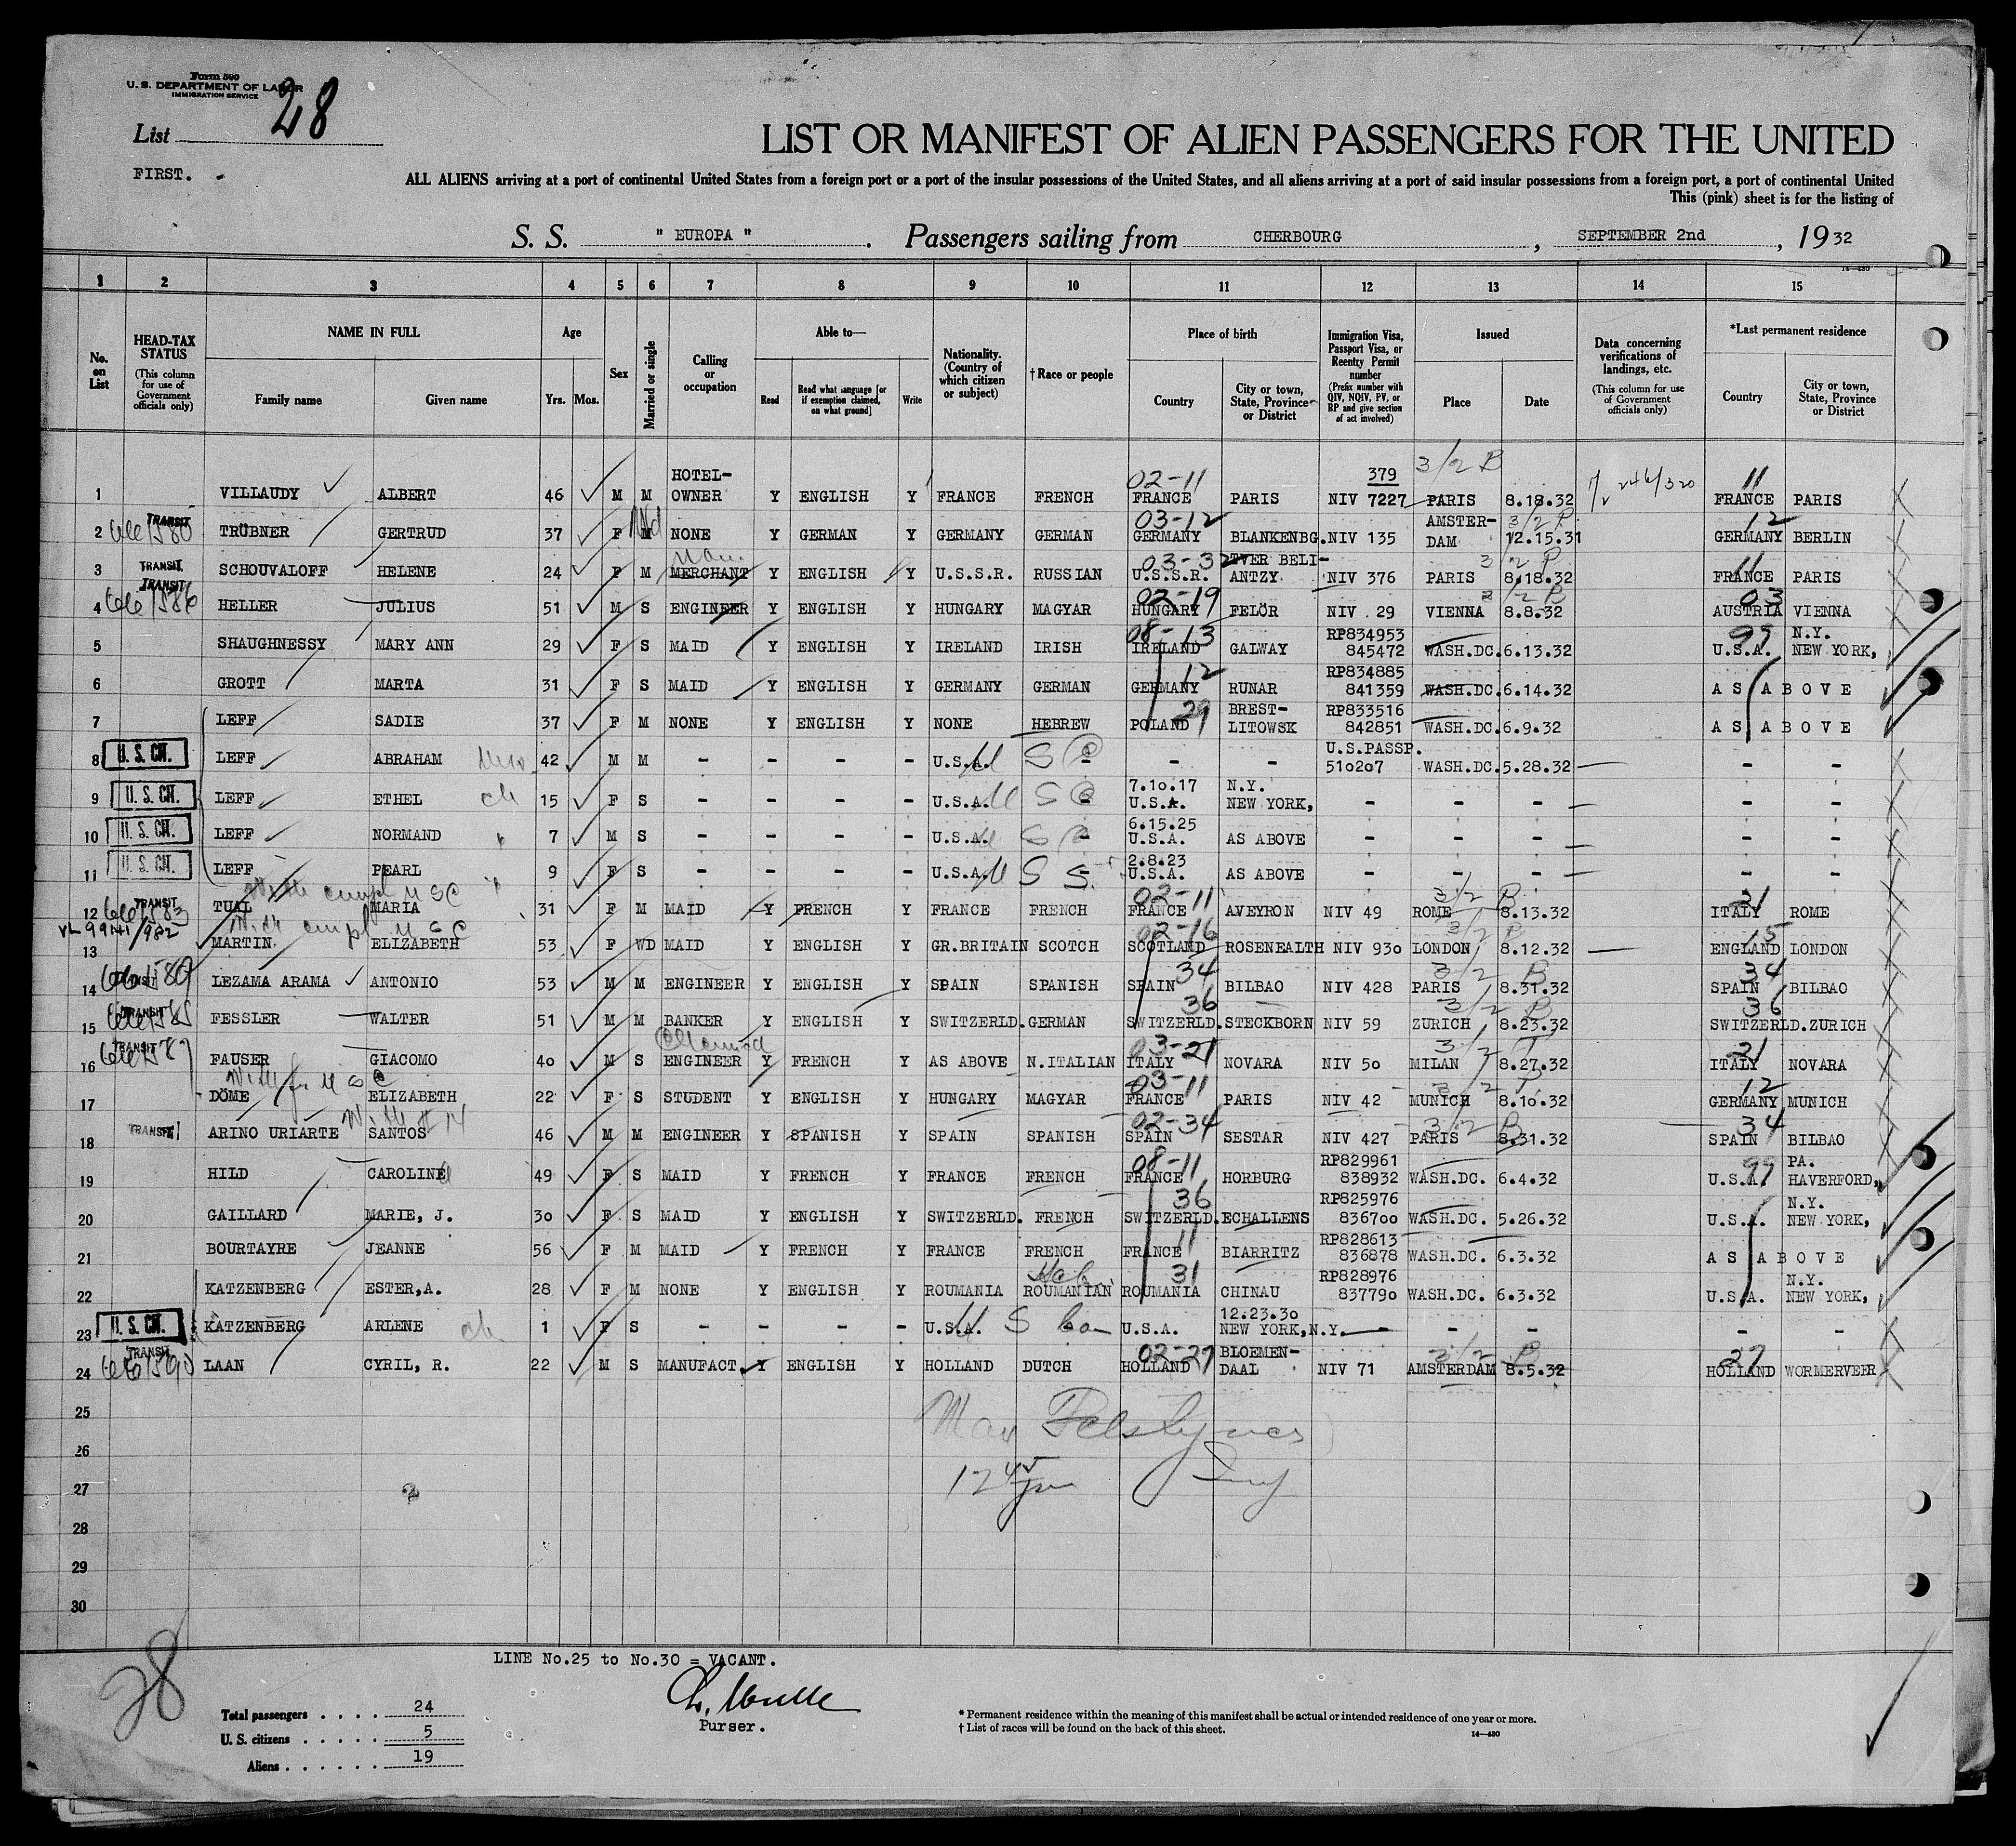 Form 500
U. S. DEPARTMENT OF LABOR
IMMIGRATION SERVICE
List 28
FIRST.
LIST OR MANIFEST OF ALIEN PASSENGERS FOR THE UNITED
ALL ALIENS arriving at a port of continental United States from a foreign port or a port of the insular possessions of the United States, and all aliens arriving at a port of said insular possessions from a foreign port, a port of continental United
This (pink) sheet is for the listing of
S. S. " EUROPA " . Passengers sailing from CHERBOURG , SEPTEMBER 2nd , 1932
14—430
1 2 3 4 5 6 7 8 9 10 11 12 13 14 15
No. on List
HEAD-TAX STATUS (This column for use of Government officials only)
NAME IN FULL Family name Given name
Age Yrs. Mos.
Sex
Married or single
Calling or occupation
Able to— Read Read what language [or if exemption claimed, on what ground] Write
Nationality. (Country of which citizen or subject)
†Race or people
Place of birth Country City or town, State, Province or District
Immigration Visa, Passport Visa, or Reentry Permit number (Prefix number with QIV, NQIV, PV, or RP and give section of act involved)
Issued Place Date
Data concerning verifications of landings, etc. (This column for use of Government officials only)
*Last permanent residence Country City or town, State, Province or District
1 VILLAUDY ALBERT 46 M M HOTEL-OWNER Y ENGLISH Y FRANCE FRENCH 02-11 FRANCE PARIS 379 NIV 7227 3/2 B PARIS 8.18.32 11 FRANCE PARIS
2 TRANSIT TRÜBNER GERTRUD 37 F M NONE Y GERMAN Y GERMANY GERMAN 03-12 GERMANY BLANKENBG. NIV 135 AMSTER-DAM 12.15.31 12 GERMANY BERLIN
3 TRANSIT SCHOUVALOFF HELENE 24 F M MERCHANT Y ENGLISH Y U.S.S.R. RUSSIAN 03-32 U.S.S.R. TVER BELI-ANTZY NIV 376 PARIS 8.18.32 11 FRANCE PARIS
4 TRANSIT HELLER JULIUS 51 M S ENGINEER Y ENGLISH Y HUNGARY MAGYAR 02-19 HUNGARY FELÖR NIV . 29 VIENNA 8.8.32 03 AUSTRIA VIENNA
5 SHAUGHNESSY MARY ANN 29 F S MAID Y ENGLISH Y IRELAND IRISH 08-13 IRELAND GALWAY RP834953 845472 WASH.DC. 6.13.32 99 U.S.A. N.Y. NEW YORK,
6 GROTT MARTA 31 F S MAID Y ENGLISH Y GERMANY GERMAN 12 GERMANY RUNAR RP834885 841359 WASH.DC. 6.14.32 AS ABOVE
7 LEFF SADIE 37 F M NONE Y ENGLISH Y NONE HEBREW 29 POLAND BREST-LITOWSK RP833516 842851 WASH.DC. 6.9.32 AS ABOVE
8 U.S. CIT. LEFF ABRAHAM 42 M M - - - U.S.A. U S C - - - U.S.PASSP. 510207 WASH.DC. 5.28.32 - -
9 U.S. CIT. LEFF ETHEL ch 15 F S - - - U.S.A. U S C - 7.10.17 U.S.A. N.Y. NEW YORK, - - - - -
10 U.S. CIT. LEFF NORMAND 7 M S - - - U.S.A. U S C - 6.15.25 U.S.A. AS ABOVE - - - - -
11 U.S. CIT. LEFF PEARL 9 F S - - - U.S.A. U S 2.8.23 U.S.A. AS ABOVE - - - - -
With empl U S C
12 TRANSIT TUAL MARIA 31 F M MAID Y FRENCH Y FRANCE FRENCH 02-11 FRANCE AVEYRON NIV 49 3/2 B ROME 8.13.32 21 ITALY ROME
With empl U S C
13 MARTIN ELIZABETH 53 F WD MAID Y ENGLISH Y GR.BRITAIN SCOTCH 02-16 SCOTLAND ROSENEALTH NIV 930 LONDON 8.12.32 15 ENGLAND LONDON
14 LEZAMA ARAMA ANTONIO 53 M M ENGINEER Y ENGLISH Y SPAIN SPANISH 34 SPAIN BILBAO NIV 428 3/2 B PARIS 8.31.32 34 SPAIN BILBAO
15 TRANSIT FESSLER WALTER 51 M M BANKER Y ENGLISH Y SWITZERLD. GERMAN 36 SWITZERLD. STECKBORN NIV 59 3/2 B ZURICH 8.23.32 36 SWITZERLD. ZURICH
16 TRANSIT FAUSER GIACOMO 40 M S ENGINEER Y FRENCH Y AS ABOVE N.ITALIAN 03-21 ITALY NOVARA NIV 50 MILAN 8.27.32 21 ITALY NOVARA
17 DÖME ELIZABETH 22 F S STUDENT Y ENGLISH Y HUNGARY MAGYAR 03-11 FRANCE PARIS NIV 42 MUNICH 8.10.32 12 GERMANY MUNICH
With # 14
18 TRANSIT ARINO URIARTE SANTOS 46 M M ENGINEER Y SPANISH Y SPAIN SPANISH 02-34 SPAIN SESTAR NIV 427 3/2 B PARIS 8.31.32 34 SPAIN BILBAO
19 HILD CAROLINE 49 F S MAID Y FRENCH Y FRANCE FRENCH 08-11 FRANCE HORBURG RP829961 838932 WASH.DC. 6.4.32 99 U.S.A. PA. HAVERFORD,
20 GAILLARD MARIE, J. 30 F S MAID Y ENGLISH Y SWITZERLD. FRENCH 36 SWITZERLD. ECHALLENS RP825976 836700 WASH.DC. 5.26.32 U.S.A. N.Y. NEW YORK,
21 BOURTAYRE JEANNE 56 F M MAID Y FRENCH Y FRANCE FRENCH 11 FRANCE BIARRITZ RP828613 836878 WASH.DC. 6.3.32 AS ABOVE
22 KATZENBERG ESTER,A. 28 F M NONE Y ENGLISH Y ROUMANIA Heb. ROUMANIAN 31 ROUMANIA CHINAU RP828976 837790 WASH.DC. 6.3.32 U.S.A. N.Y. NEW YORK,
23 U.S. CIT. KATZENBERG ARLENE ch 1 F S - - - U.S.A. U S U.S.A. 12.23.30 NEW YORK,N.Y. - - - - -
24 TRANSIT LAAN CYRIL, R. 22 M S MANUFACT. Y ENGLISH Y HOLLAND DUTCH 02-27 HOLLAND BLOEMEN-DAAL NIV 71 3/2 B AMSTERDAM 8.5.32 27 HOLLAND WORMERVEER
25
26
27
28
29
30
LINE No.25 to No.30 = VACANT.
28
Total passengers . . . . 24
U. S. citizens . . . . . 5
Aliens . . . . . . 19
Purser.
* Permanent residence within the meaning of this manifest shall be actual or intended residence of one year or more.
† List of races will be found on the back of this sheet.
14—430